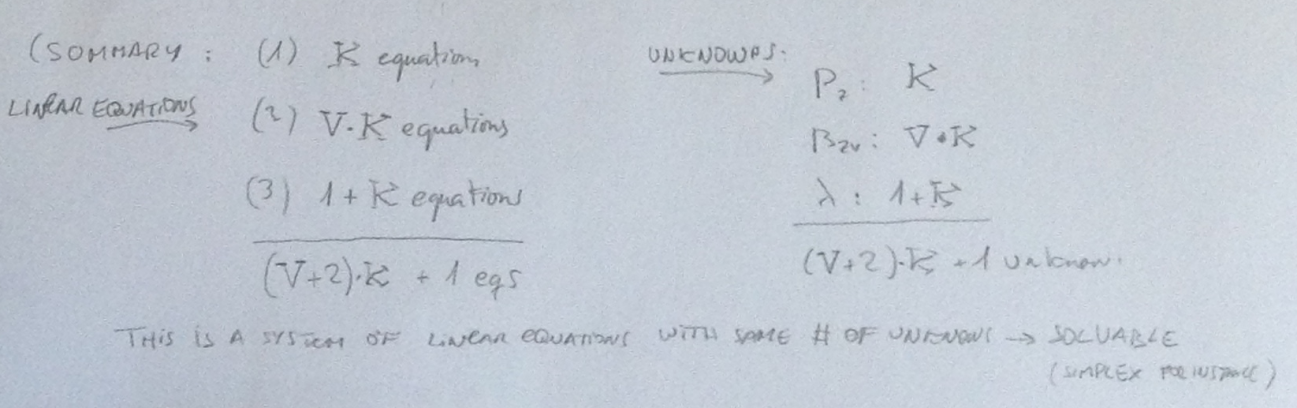 (SOMMARY : (1) K equations
LINEAR EQUATIONS → (2) V·K equations
(3) 1+K equations
(V+2)·K + 1 eqs
UNKNOWNS: →
P_z : K
β_zv : V·K
λ : 1+K
(V+2)·K +1 unknown.
THIS IS A SYSTEM OF LINEAR EQUATIONS WITH SAME # OF UNKNOWNS → SOLUABLE
(SIMPLEX FOR INSTANCE)